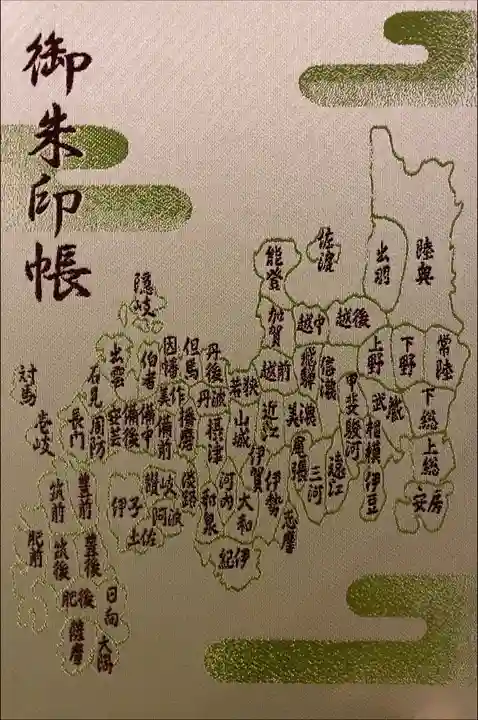 御朱印帳
陸奥
出羽
佐渡
能登
加賀
越中
越後
上野
下野
常陸
越前
飛騨
信濃
甲斐
武蔵
下総
上総
安房
相模
伊豆
駿河
遠江
三河
尾張
美濃
近江
若狭
山城
伊賀
伊勢
志摩
大和
紀伊
河内
和泉
摂津
丹波
丹後
但馬
因幡
伯耆
出雲
隠岐
石見
美作
播磨
備前
備中
備後
安芸
周防
長門
淡路
讃岐
阿波
伊予
土佐
対馬
壱岐
筑前
豊前
肥前
筑後
豊後
肥後
日向
薩摩
大隅